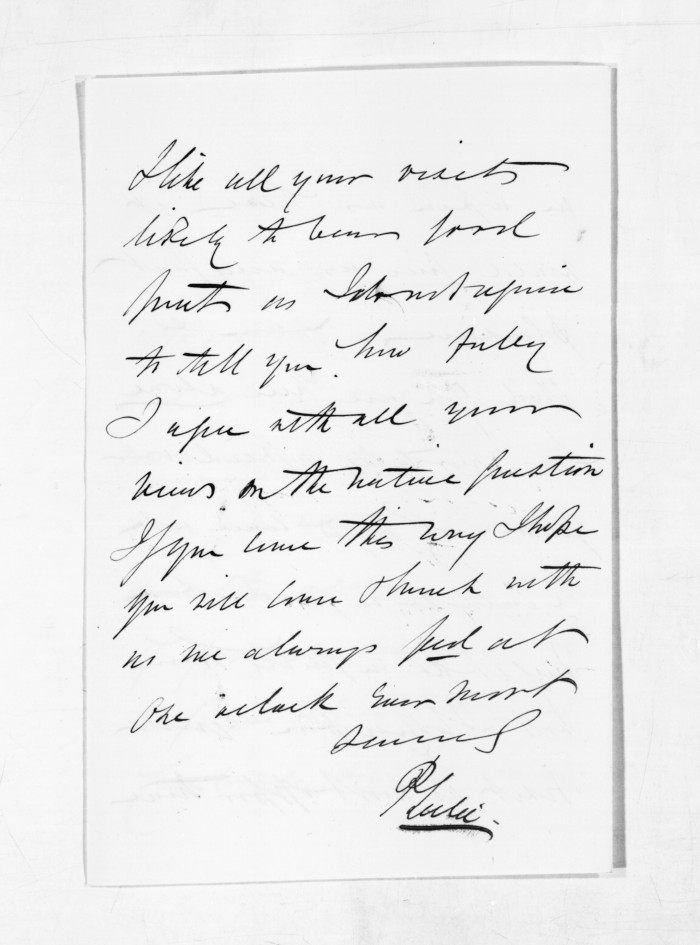 I like all your visits
likely to bear good
fruits as I do not require
to tell you how fully
I agree with all your
views on the native question
If you come this way I hope
you will come & lunch with
us we always feed at
One oclock Ever most